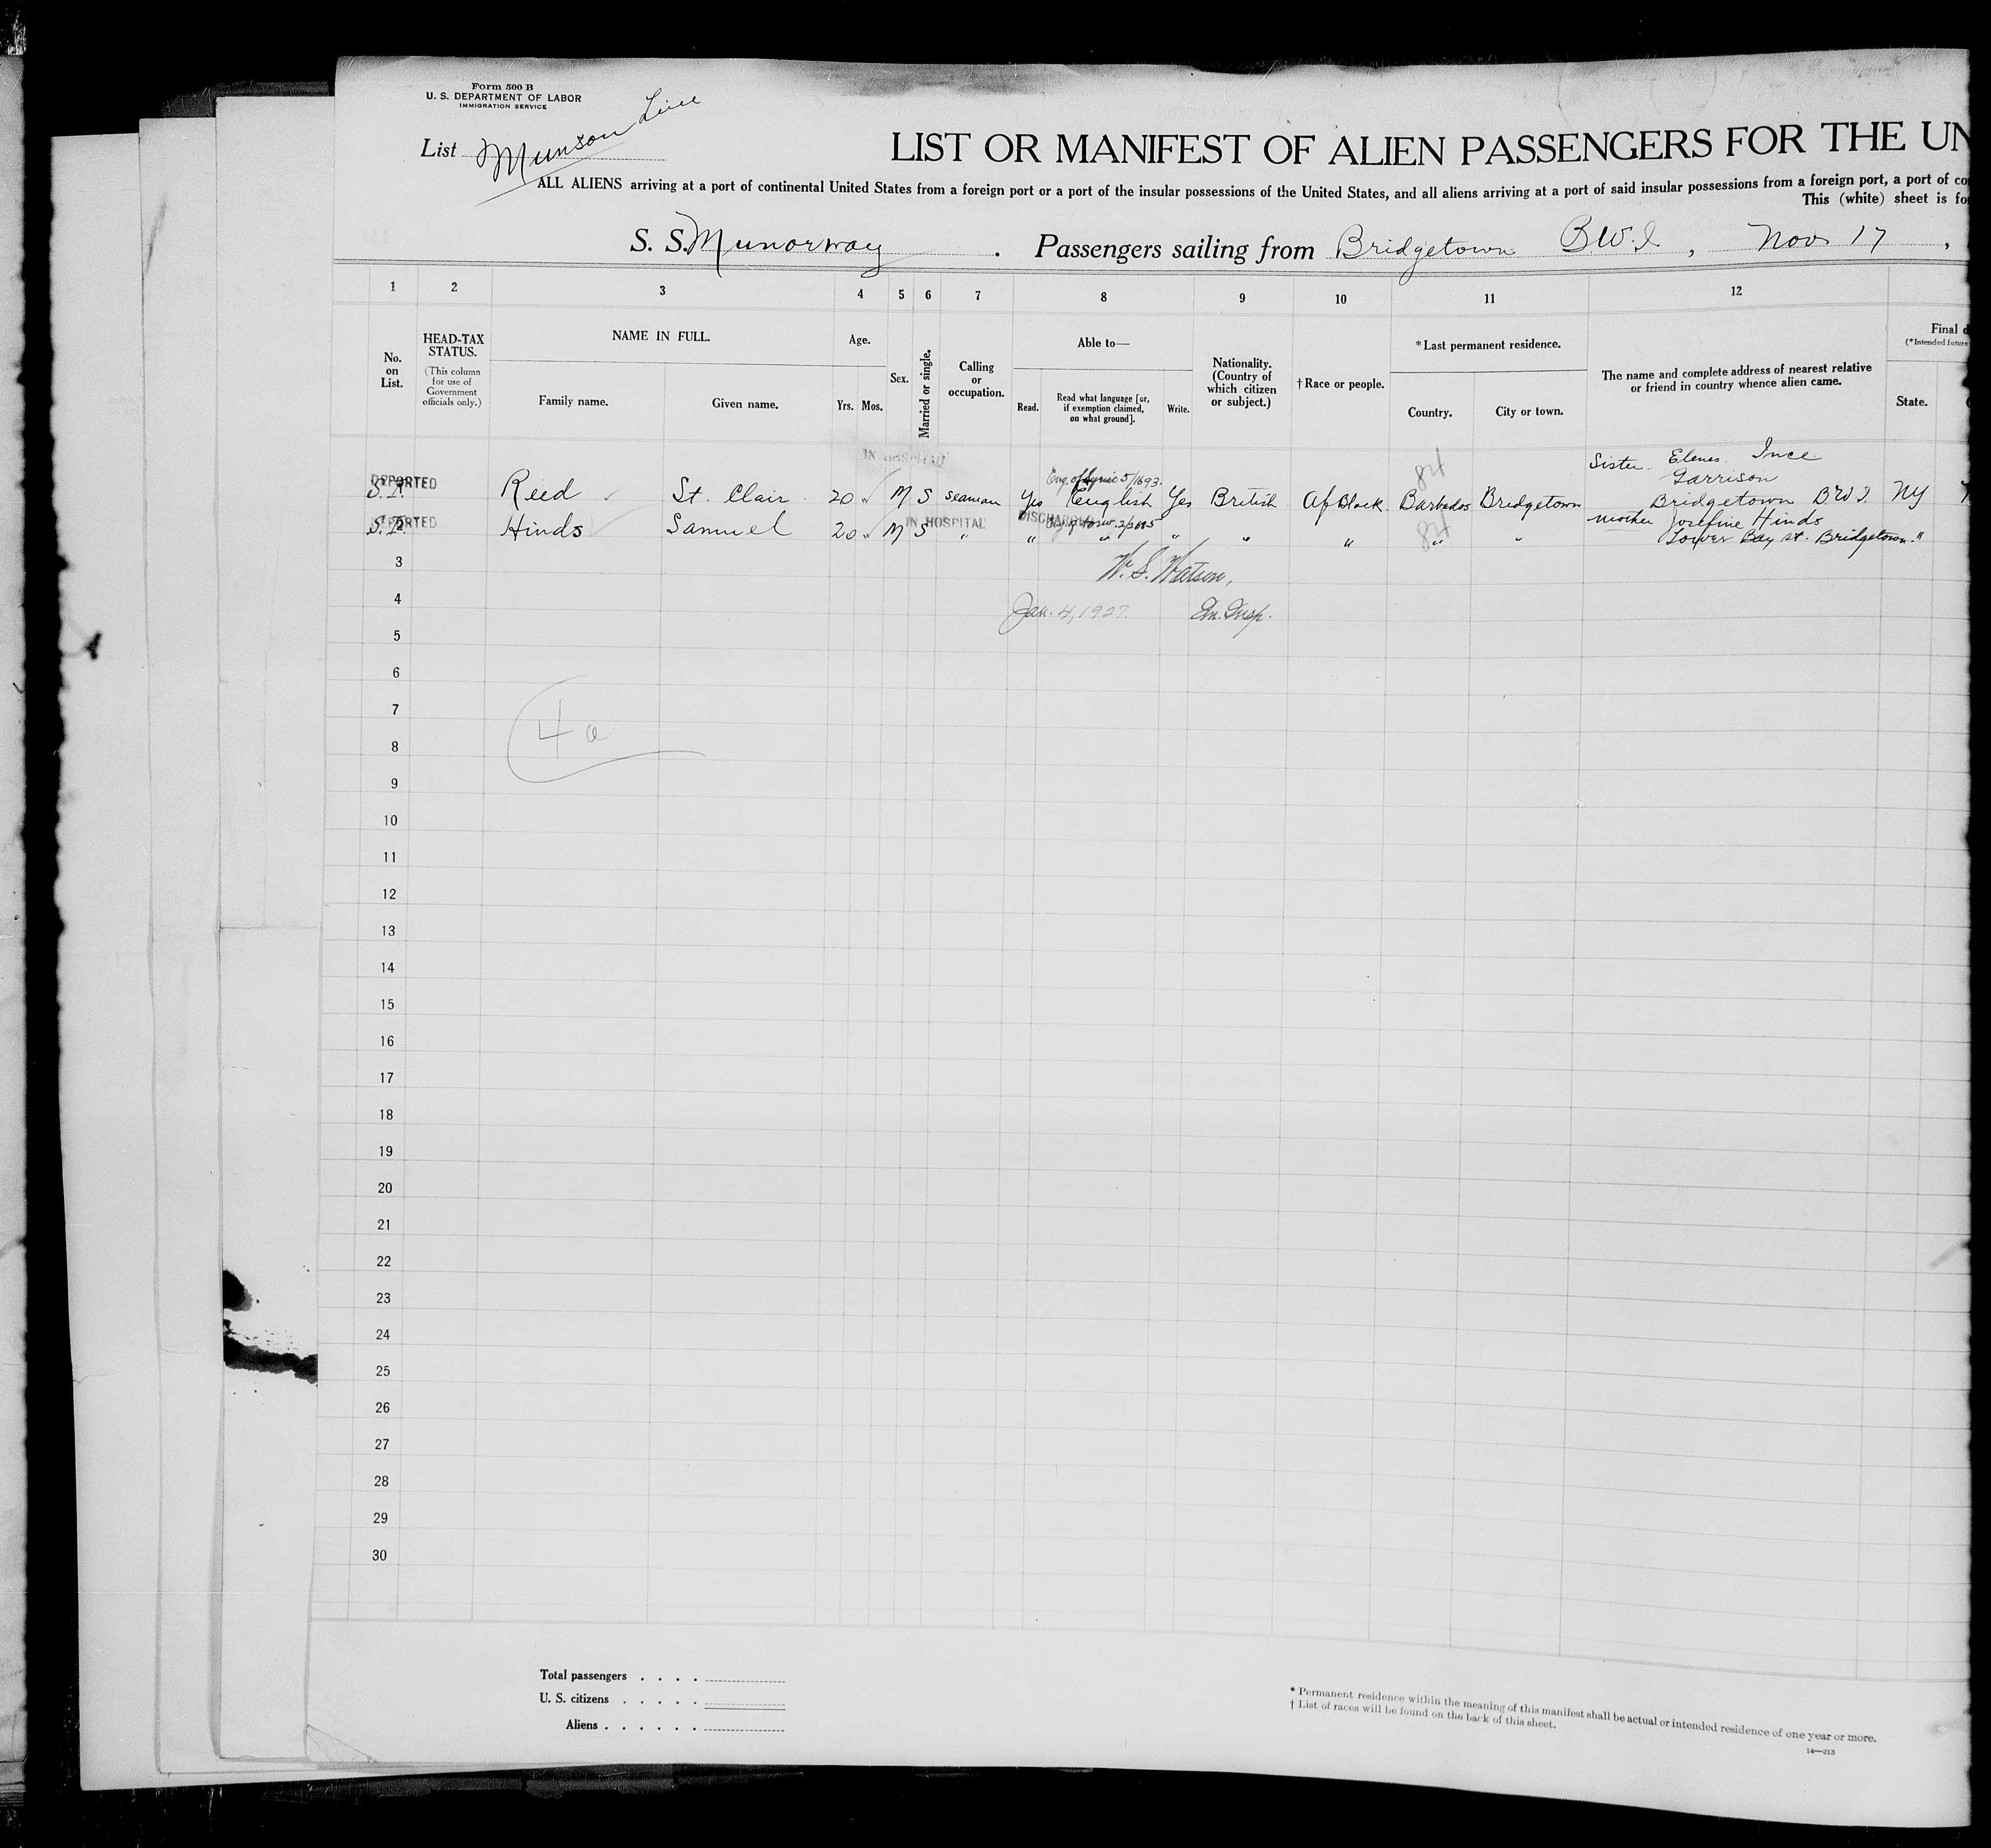 Form 500 B
U. S. DEPARTMENT OF LABOR
IMMIGRATION SERVICE
List Munson Line
LIST OR MANIFEST OF ALIEN PASSENGERS FOR THE UN
ALL ALIENS arriving at a port of continental United States from a foreign port or a port of the insular possessions of the United States, and all aliens arriving at a port of said insular possessions from a foreign port, a port of co
This (white) sheet is fo
S. S. Munorway . Passengers sailing from Bridgetown B.W.I , Nov 17 ,
1 2 3 4 5 6 7 8 9 10 11 12
No. on List.
HEAD-TAX STATUS.
(This column for use of Government officials only.)
NAME IN FULL.
Family name. Given name.
Age.
Yrs. Mos.
Sex.
Married or single.
Calling or occupation.
Able to—
Read.
Read what language [or, if exemption claimed, on what ground].
Write.
Nationality. (Country of which citizen or subject.)
† Race or people.
* Last permanent residence.
Country. City or town.
The name and complete address of nearest relative or friend in country whence alien came.
Final d
(*Intended future
State.
IN HOSPITAL
84
Sister Elenes Ince
Garrison
DEPORTED
S.I. Reed St. Clair 20 M S Seaman Yes English Yes British Af Black Barbados Bridgetown Bridgetown BWI NY
DEPORTED IN HOSPITAL DISCHARGED
S.I. Hinds Samuel 20 M S " " " " " " " " mother Josefine Hinds
84
Lower Bay st. Bridgetown "
3 W. S. Watson,
4 Jan. 4, 1927. Im. Insp.
5
6
7
4a
8
9
10
11
12
13
14
15
16
17
18
19
20
21
22
23
24
25
26
27
28
29
30
Total passengers . . . .
U. S. citizens . . . . .
Aliens . . . . . .
* Permanent residence within the meaning of this manifest shall be actual or intended residence of one year or more.
† List of races will be found on the back of this sheet.
14—213